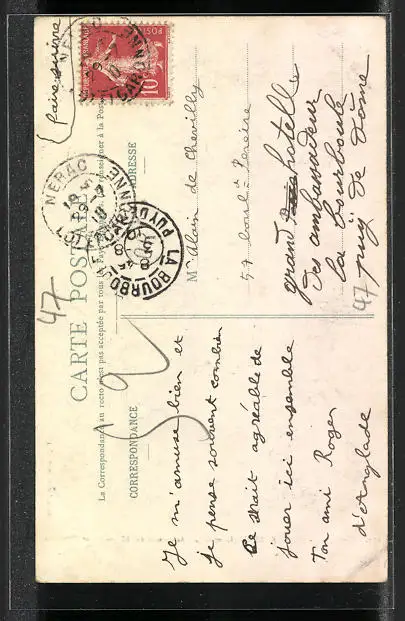 CARTE POSTALE
La Correspondance au recto n'est pas acceptée par tous les Pays
CORRESPONDANCE
ADRESSE
(faire suivre
10
NERAC
LOT ET GARONNE
LA BOURBOULE
PUY DE DOME
47
Je m'amuse bien et
je pense souvent combien
ce serait agréable de
jouer ici ensemble
Ton ami Roger
d'Anglade
M. Alain de Chevilly
57 boul. Pereire
grand hotelle
des ambassadeur
la bourboule
puy de Dome
47